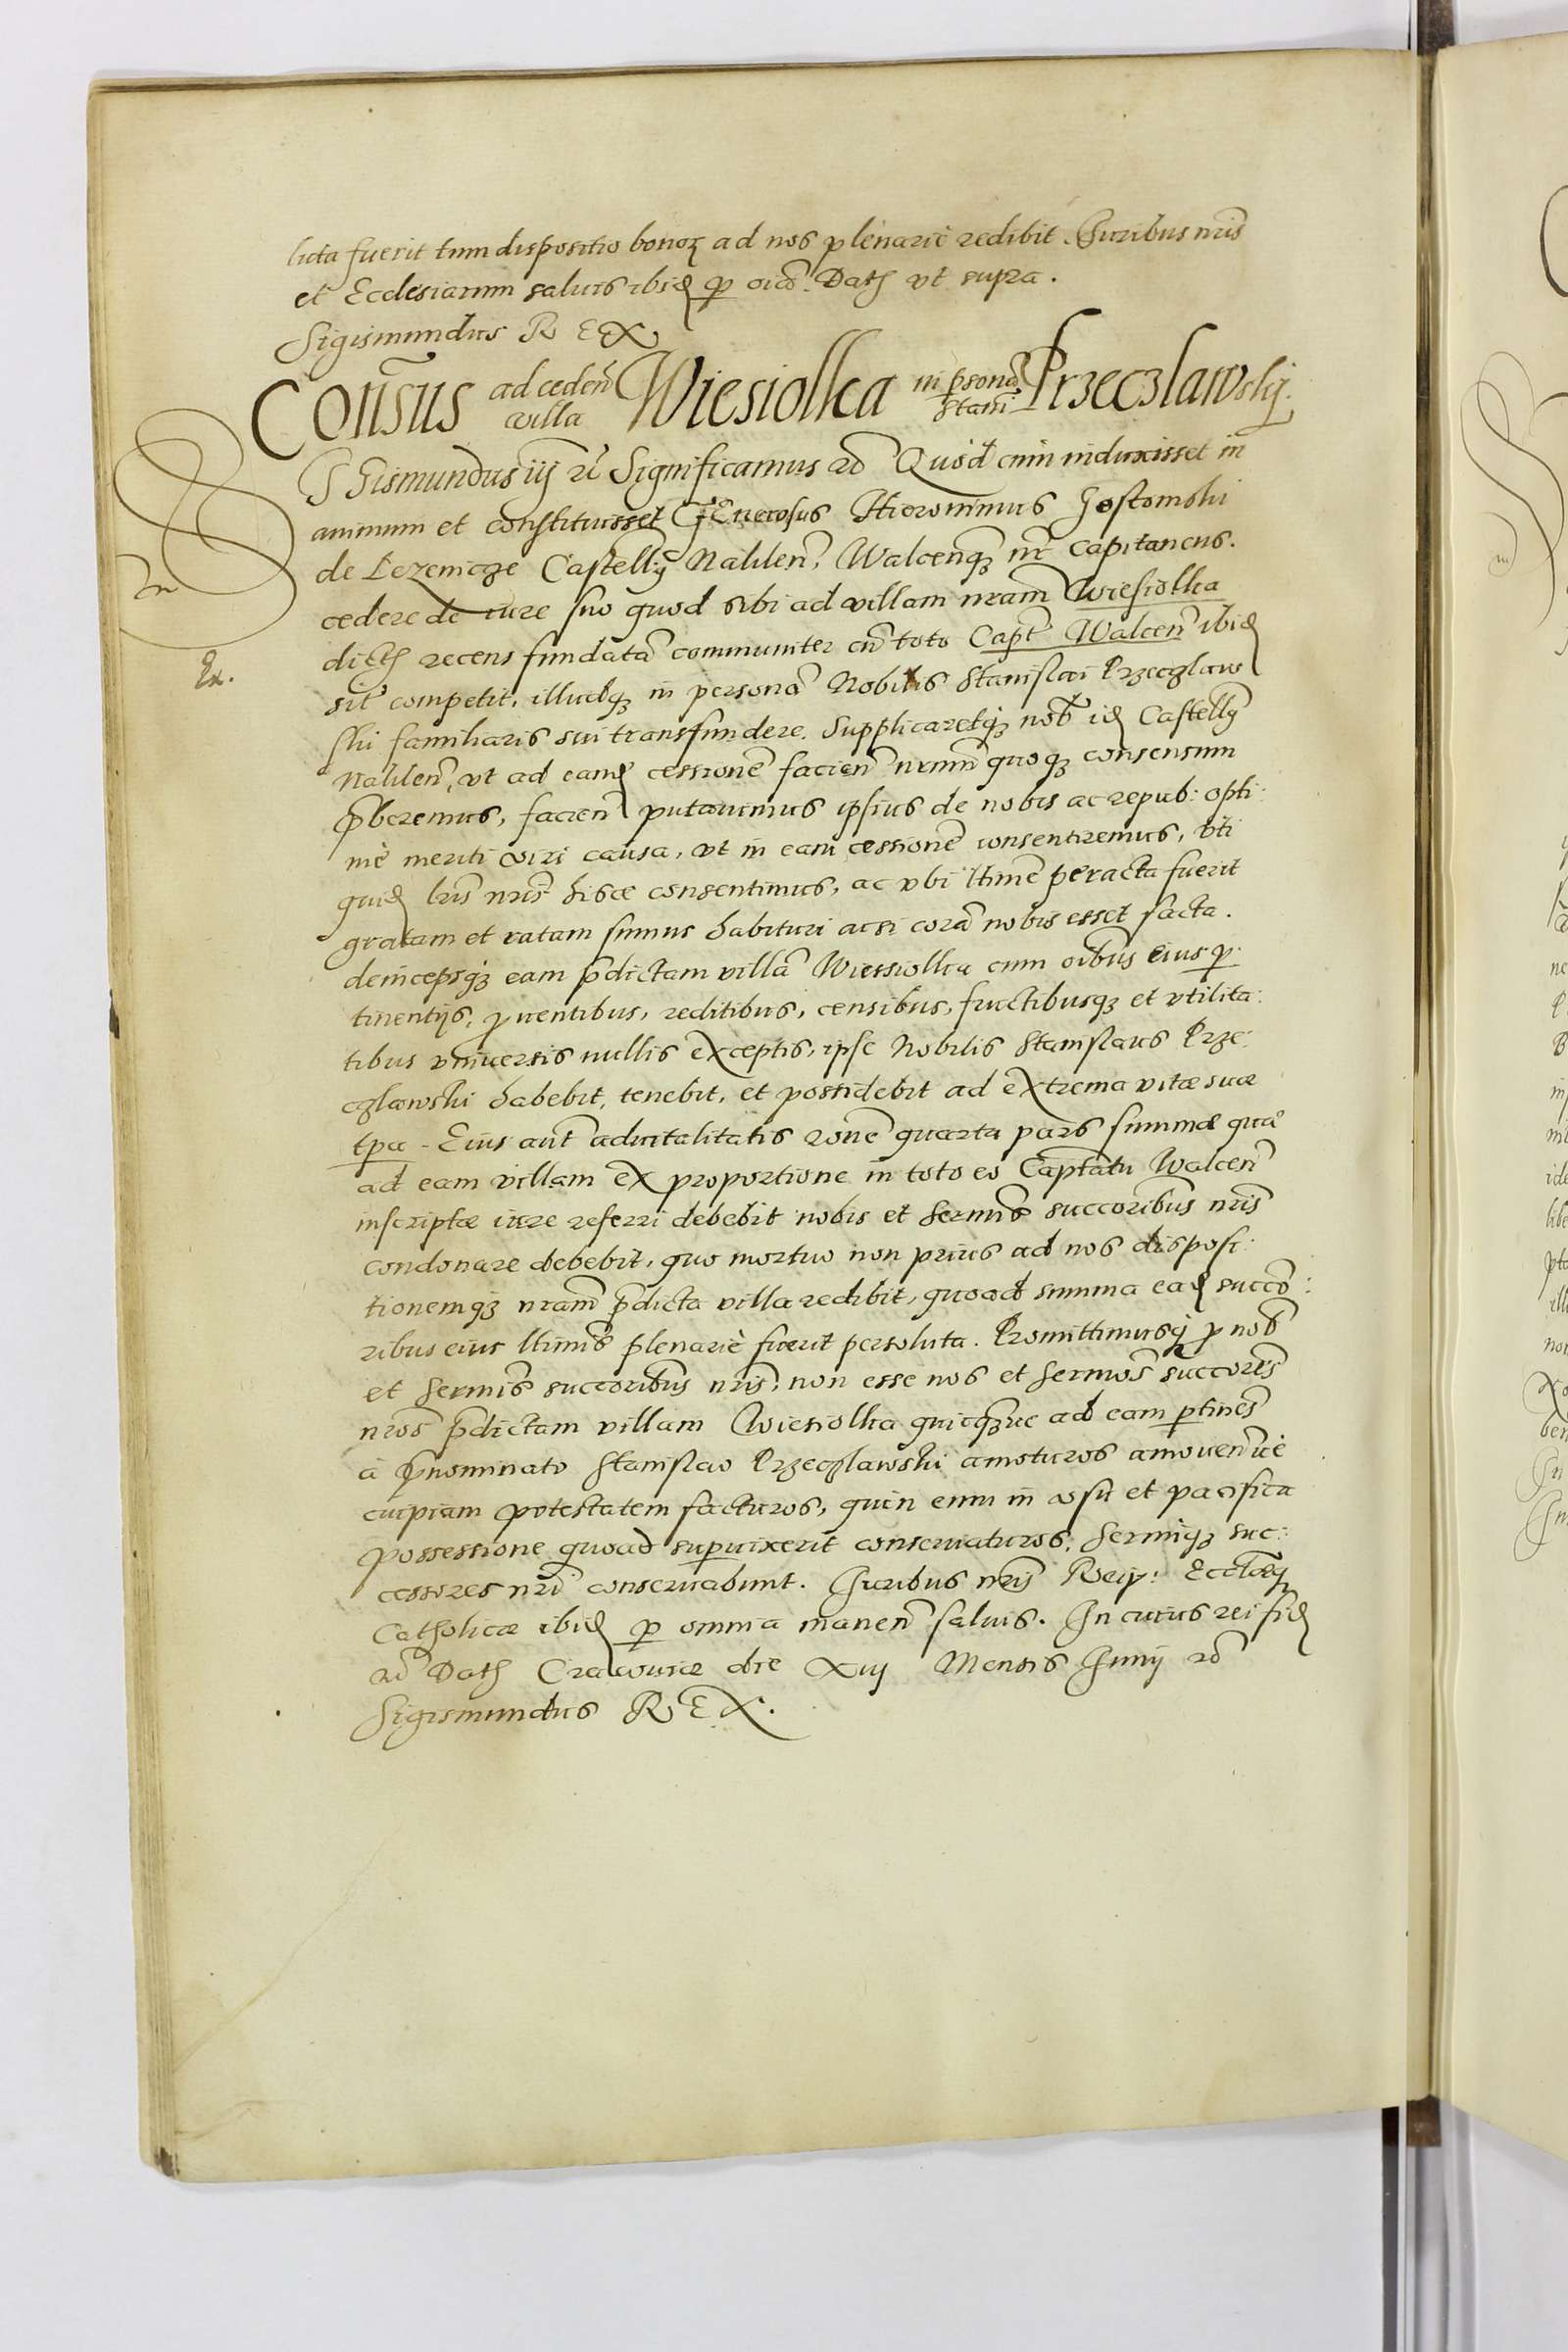 luta fuerit tum dispositio bonoꝝ ad nos plenariè redibit. Iuribus nr̃is
et Ecclesiarum saluis ibid̃ ꝑ oĩa. Dat̃ vt supra.
Sigismundus REX
Cons̃us ad ceden̄ villa Wiesiolka in p̱sonã Stani Przeczlawskij.
SIGismundus iij r̃ Significamus r̃ Quod cum induxisset in
animum et constituisset GEnerosus Hieronimus Gostomski
de Lezenicze Castellꝰ Naklen̄, Walcenqꝫ nr̃ Capitaneus.
cedere de iure suo quod sibi ad villam nram̃ Wiesiolka
dict̃ recens fundatã communiter cũ toto Capt̃ Walcen̄ ibid̃
sit competit, illudqꝫ in personã Nobilis Stanislai Przeczlaw
ski familiaris sui transfundere. Supplicaretqꝫ nob̃ id̃ Castellꝰ
Naklen̄, vt ad eand̃ cessionẽ facien̄ nrum̃ quoqꝫ consensum
p̃beremus, facien̄ putauimus ipsius de nobis ac repub: opti:
mè meriti viri causa, vt in eam cessionẽ consentiremus, vti
quid̃ lr̃is nr̃is hisce consentimus, ac vbi ltimẽ peracta fuerit
gratam et ratam sumus habituri acsi corã nobis esset facta.
deincepsqꝫ eam p̃dictam villã Wiessiolka cum oĩbus eius ꝑ
tinentijs, ꝓuentibus, reditibus, censibus, fructibusqꝫ et vtilita:
tibus vniuersis nullis exceptis, ipse Nobilis Stanislaus Prze:
czlawski habebit, tenebit, et possidebit ad extrema vitæ suæ
tp̱a. Eius aut̃ aduitalitatis r̃onẽ quarta pars summæ quæ
ad eam villam ex proportione in toto eo Capt̃atu Walcen̄
inscriptæ iure referri debebit nobis et Sermis̃ succoribus̃ nr̃is
condonare debebit, quo mortuo non prius ad nos disposi:
tionemqꝫ nram̃ p̃dicta villa redibit, quoad summa ead̃ succõ:
ribus eius ltimis̃ plenariè fuerit persoluta. Promittimusqꝫ ꝓ nob̃
et Sermis̃ succoribus̃ nr̃is, non esse nos et Sermos̃ succores̃
nr̃os p̃dictam villam Wiesiolka quicqꝫue ad eam ꝑtinen̄s
à p̃nominato Stanislao Przeczlawski amoturos amouen̄uè
cuipiam potestatem facturos, quin eum in vsu et pacifica
possessione quoad superuixerit conseruaturos; Sermiqꝫ suc:
cessores nr̃i conseruabunt. Iuribus nr̃is Reip: Eccl̃æqꝫ
Catholicæ ibid̃ ꝑ omnia manen̄ saluis. In cuius rei fid̃
r̃ Dat̃ Cracouiæ die Xiij Mensis Iunij r̃
Sigismundus REX.